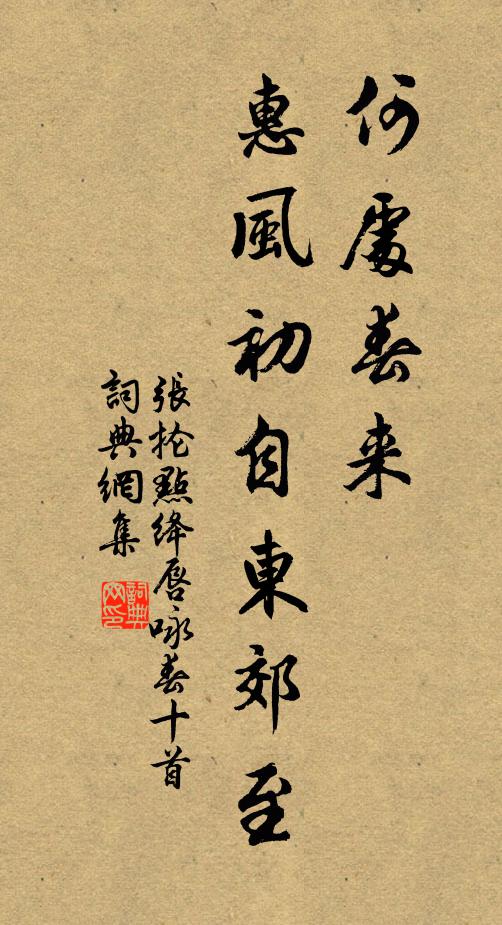 何處春来
惠風初自東郊至
張掄點絳唇咏春十首
詞典網集
詞典網印